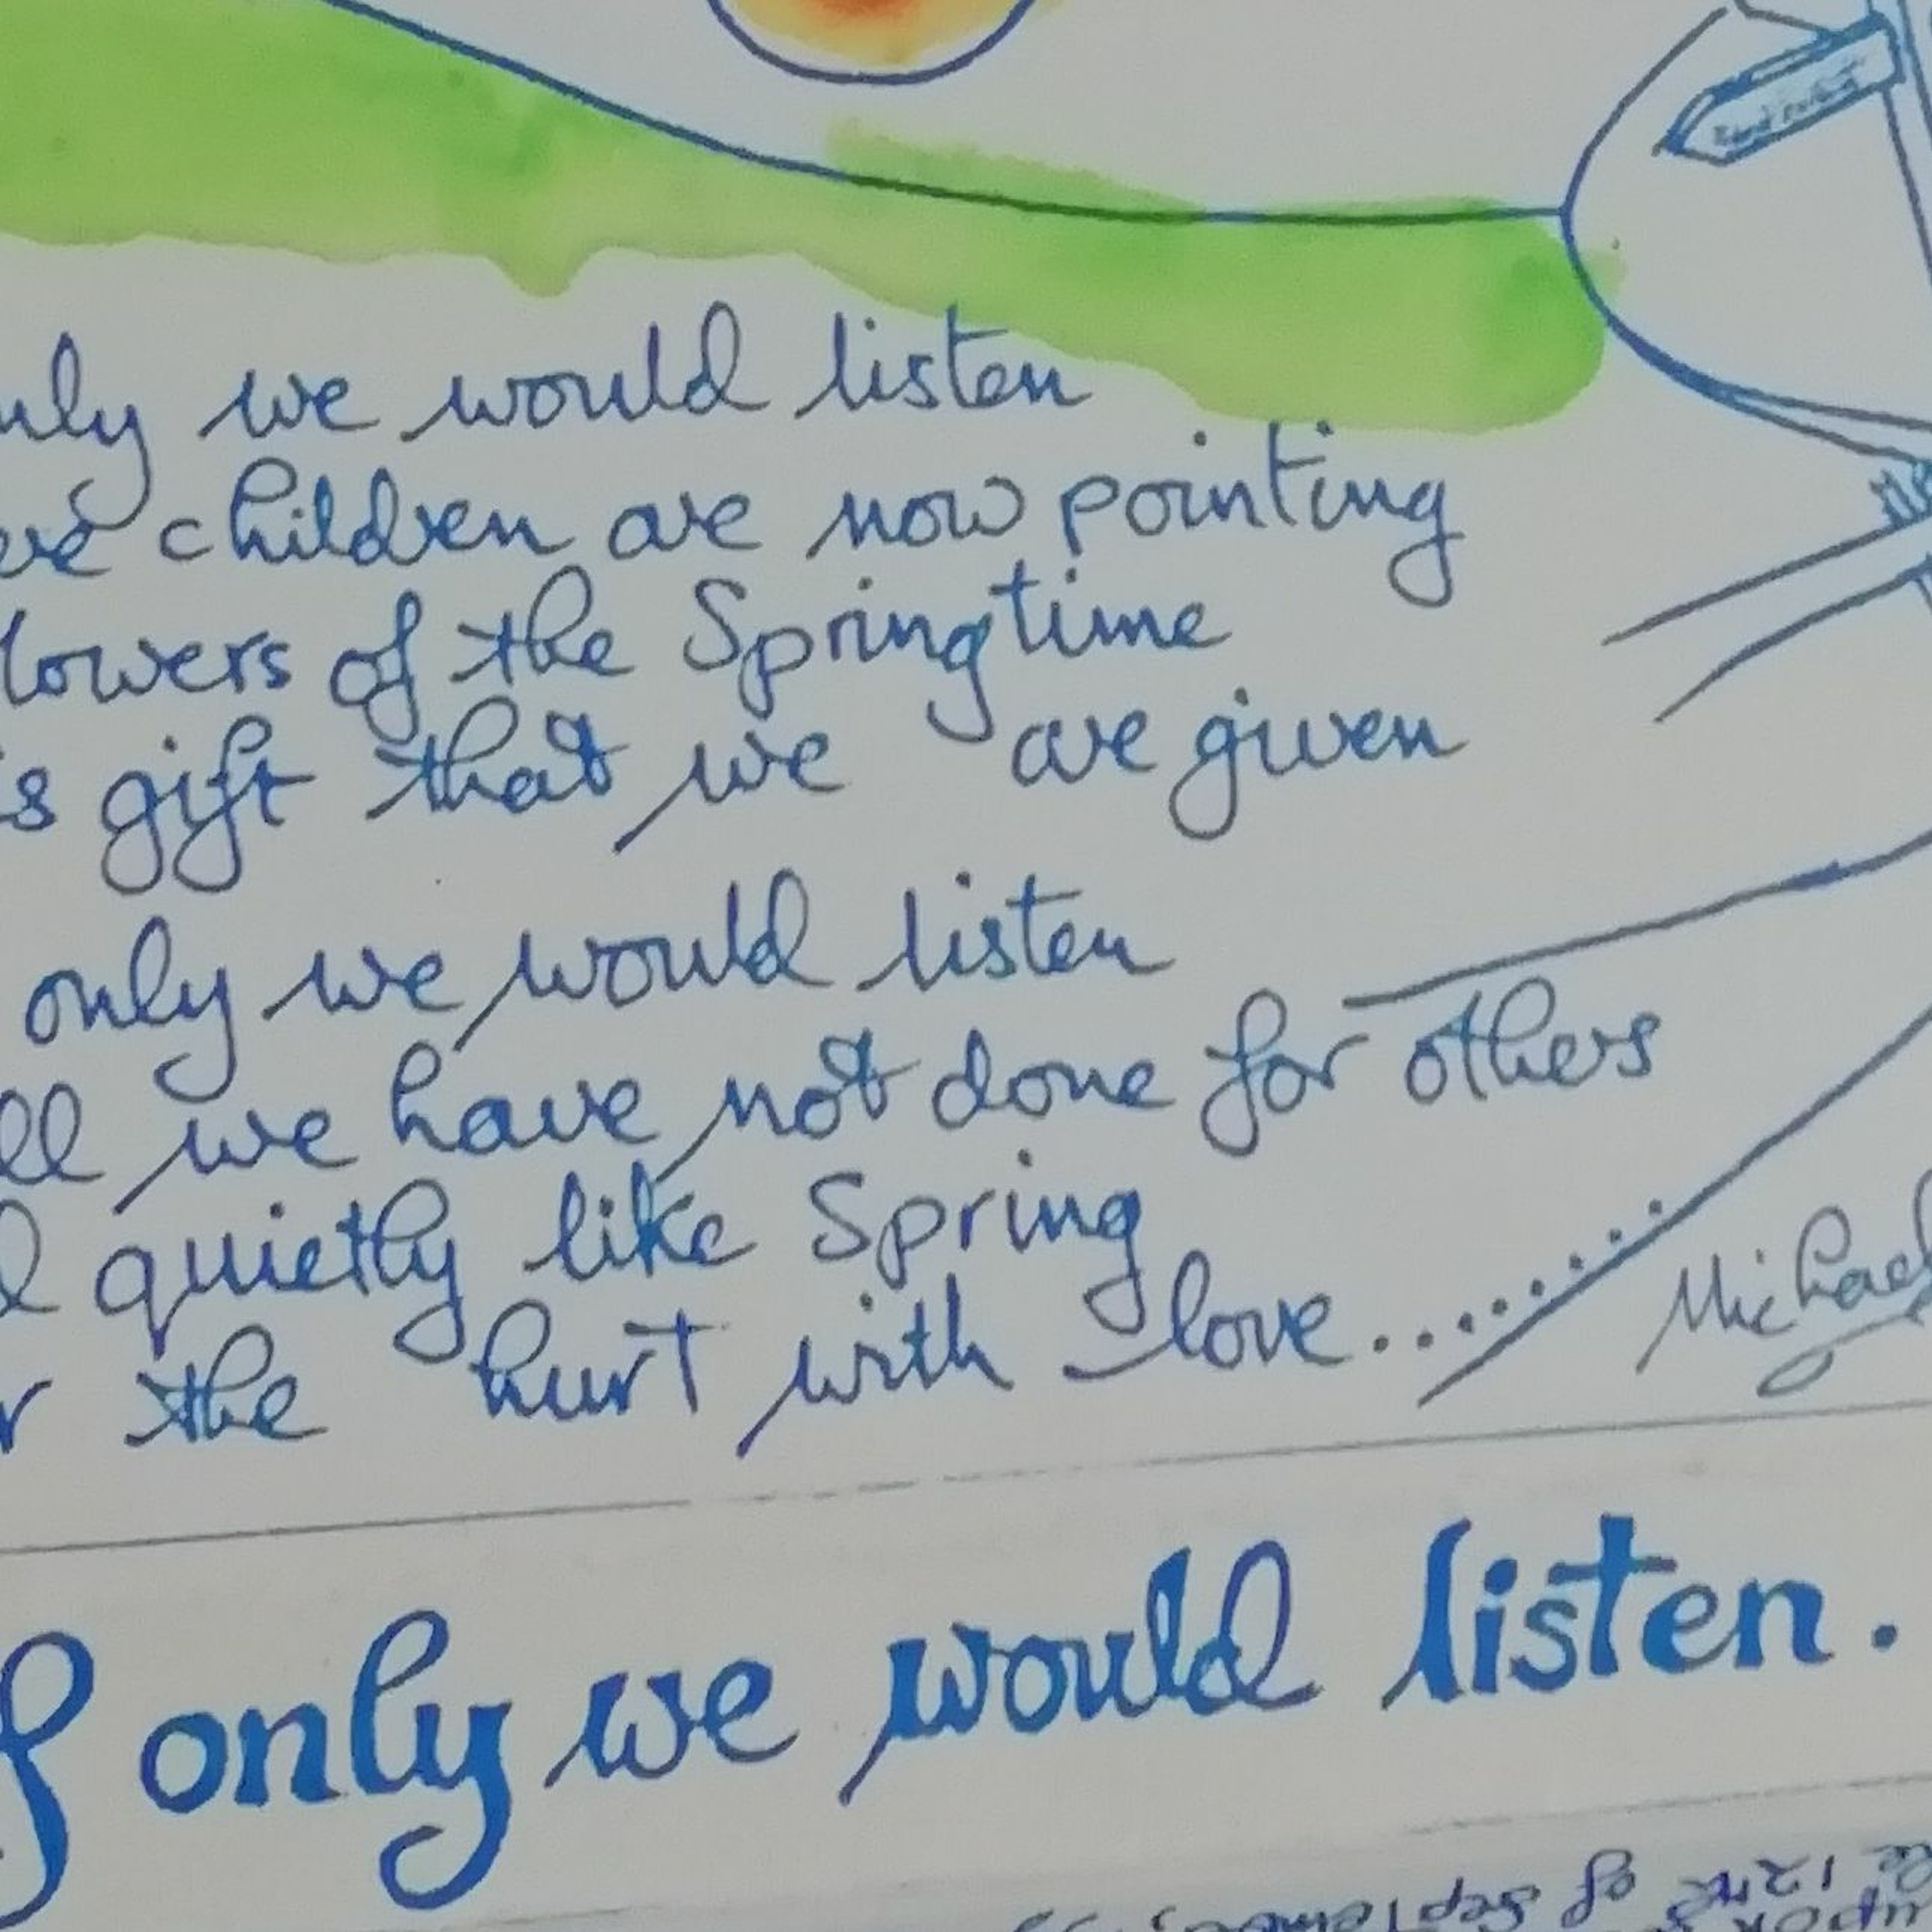 nly we would listen
ere children are now pointing
lowers of the Springtime
is gift that we are given
only we would listen
ll we have not done for others
l quietly like Spring
r the hurt with love..........
Michael
f only we would listen.
12th of September